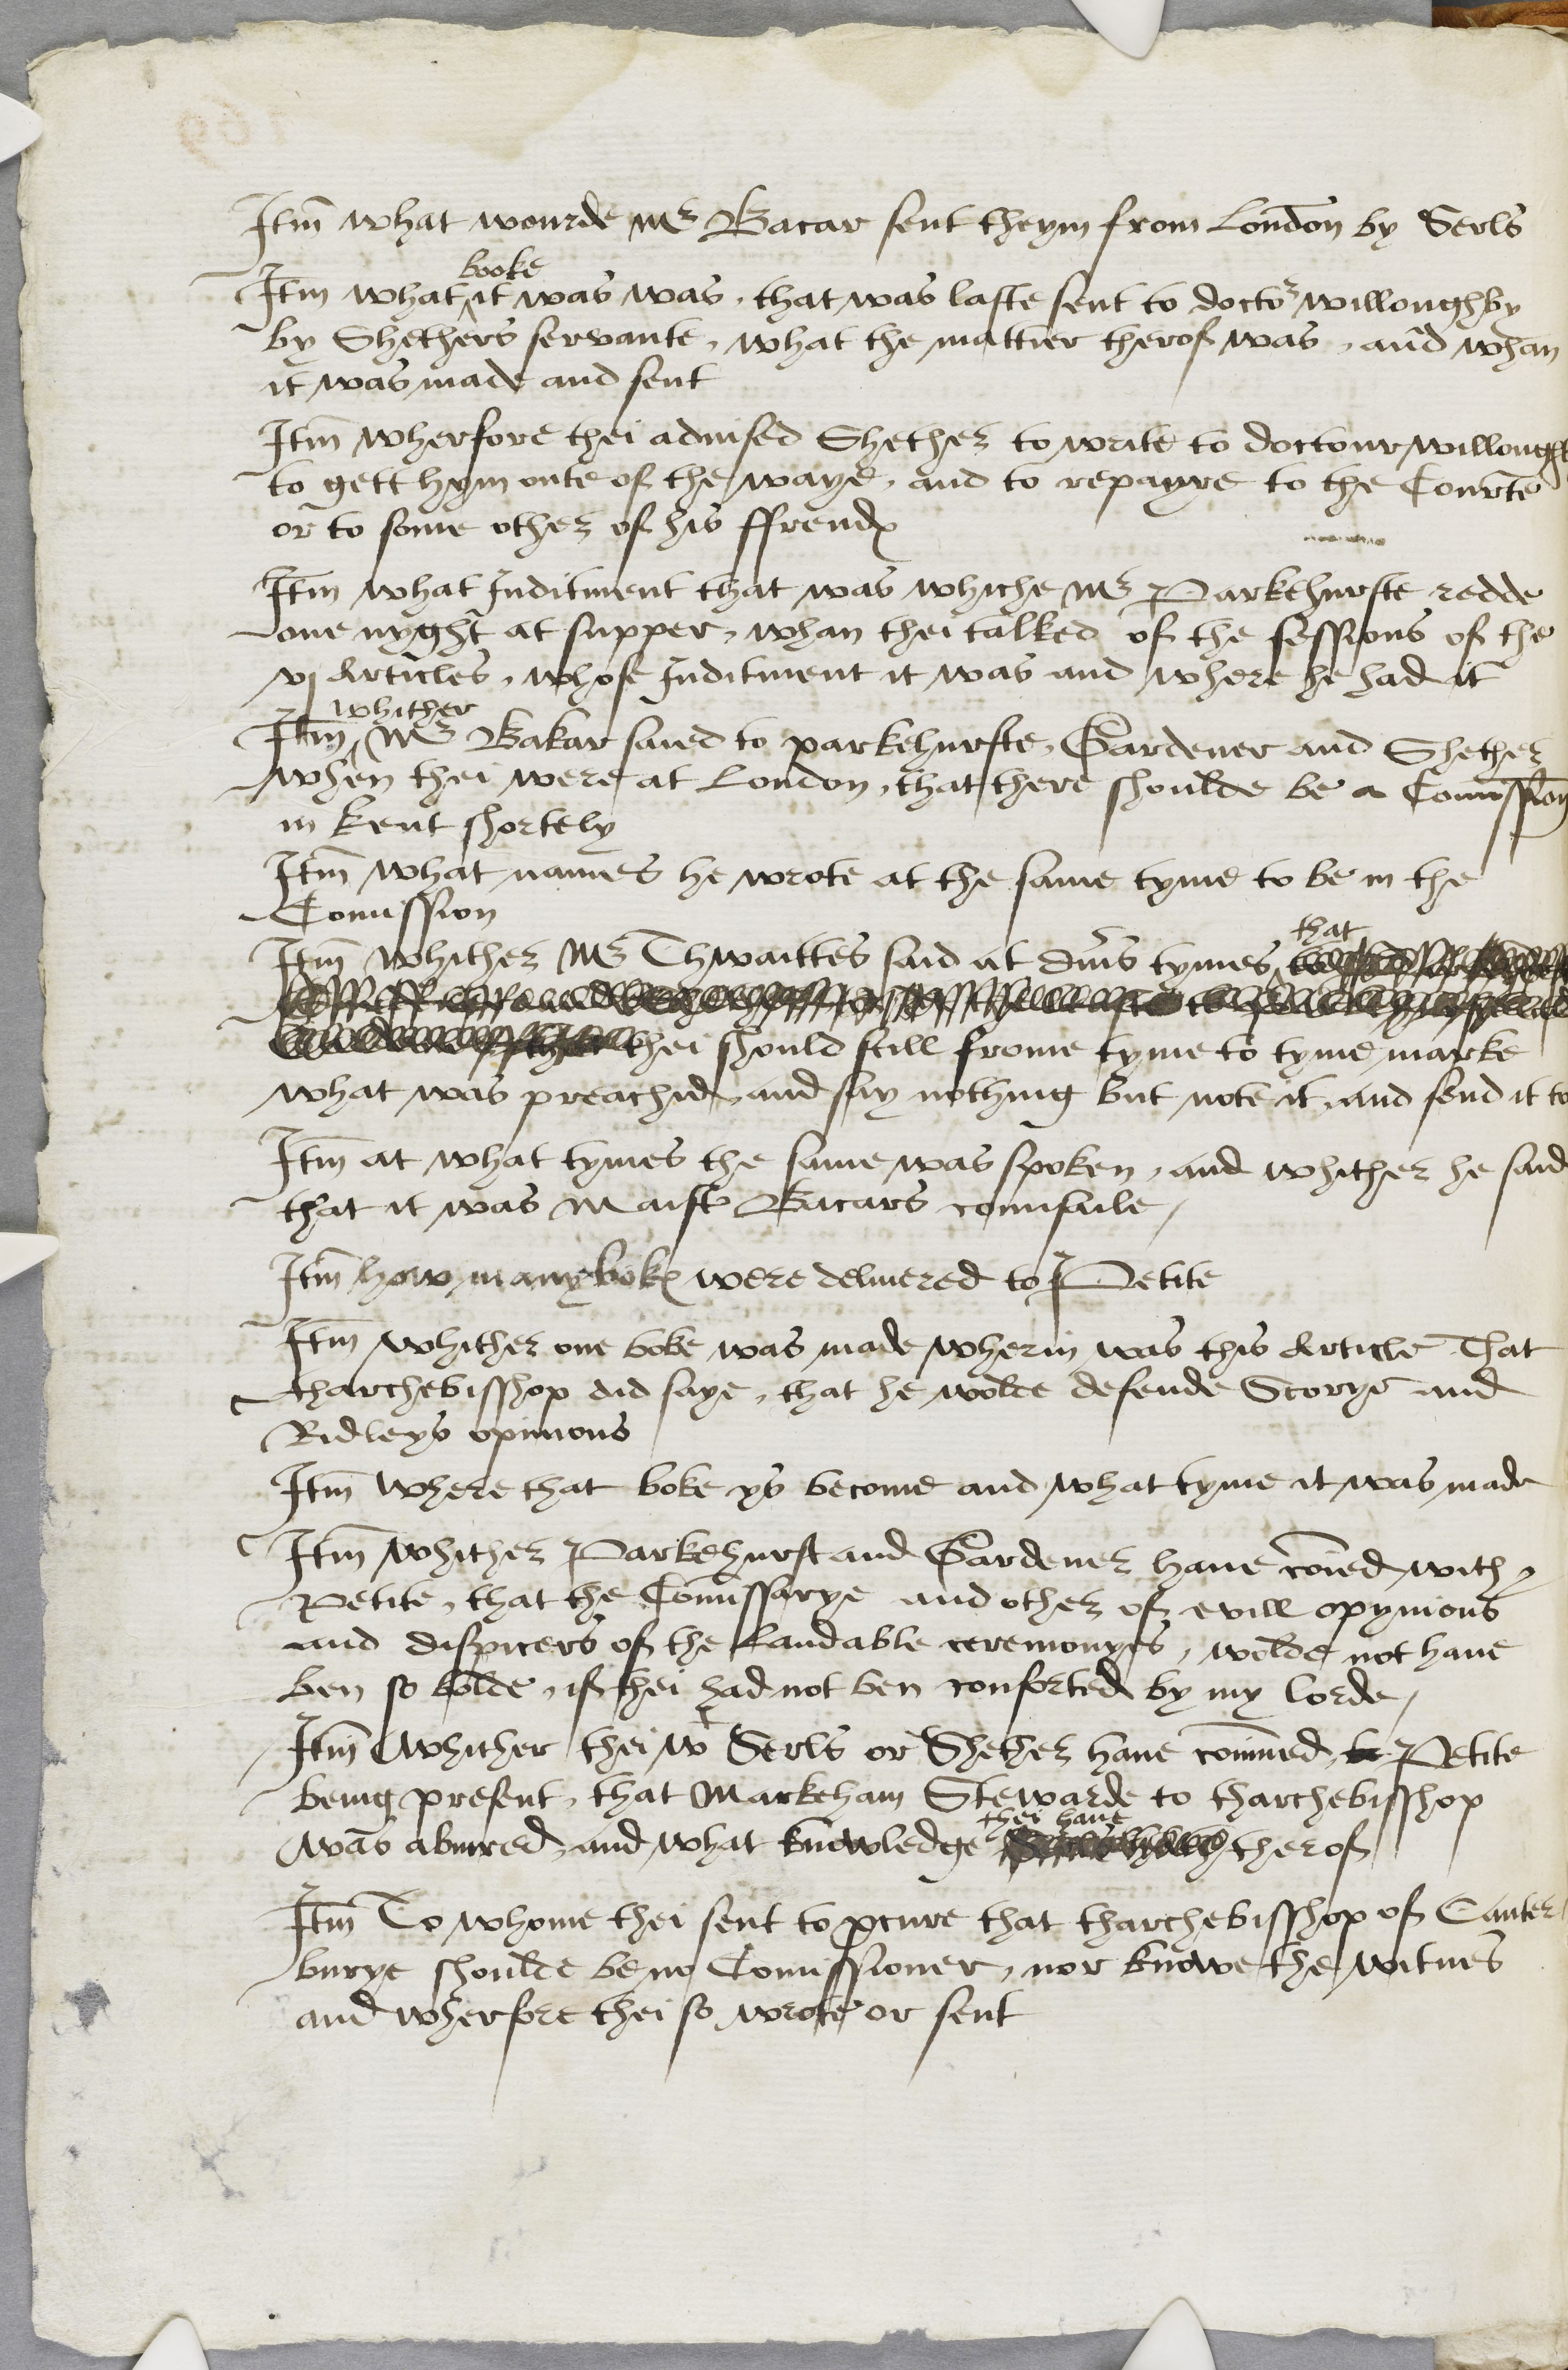 Itm what wourde Mr Bacar sent theym from London by Serls
Itm what booke it was was, that was laste sent to doctor willoughby
by Shethers servante, what the mattier therof was, and whan
it was made and sent
Itm wherfore thei advised Shether to write to doctour willoughb
to gett hym oute of the waye, and to repayre to the Courte
or to some other of his ffrends
Itm what Inditment that was whiche Mr Parkehurste redde
one nyght at supper, whan thei talked of the sessions of the
vj Articles, whose Inditment it was and where he had it
Itm whither Mr Bakar saied to parkehurste, Gardener and Shether
when thei were at London, that there shoulde be a Comission
in Kent shortely
Itm what names he wrote at the same tyme to be in the
Comission
Itm whither Mr Thwaittes said at divs tymes that
thei should still frome tyme to tyme marke
what was preachid, and say nothing but note it, and send it to
Itm at what tymes the same was spoken, and whither he said
that it was Maistr Bacars counsaile,
Itm how many boks were delivered to Petite
Itm whither one boke was made wherin was this Article That
tharchebisshop did saye, that he wolde defende Scorye and
Ridleys opinions
Itm where that boke ys become and what tyme it was made
Itm whither Parkehurst and Gardener have coied with
Petite, that the Comissarye and other of evill opynions
and dispicers of the laudable ceremonyes, wolde not have
ben so bolde, if thei had not ben conforted by my lorde,
Itm Whither thei wt Serls or Shether have comuned, Petite
being present, that Markeham Stewarde to tharchebisshop
was abiured, and what knowledge thei have therof
Itm To whome thei sent to pcure that tharchebisshop of Canter
burye shoulde be no Comissioner, nor knowe the witnes
and wherfore thei so wrote or sent